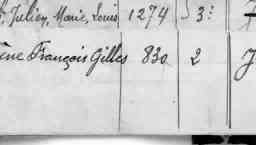 Julien, Marie, Louis 1274 3
François Gilles 830 2